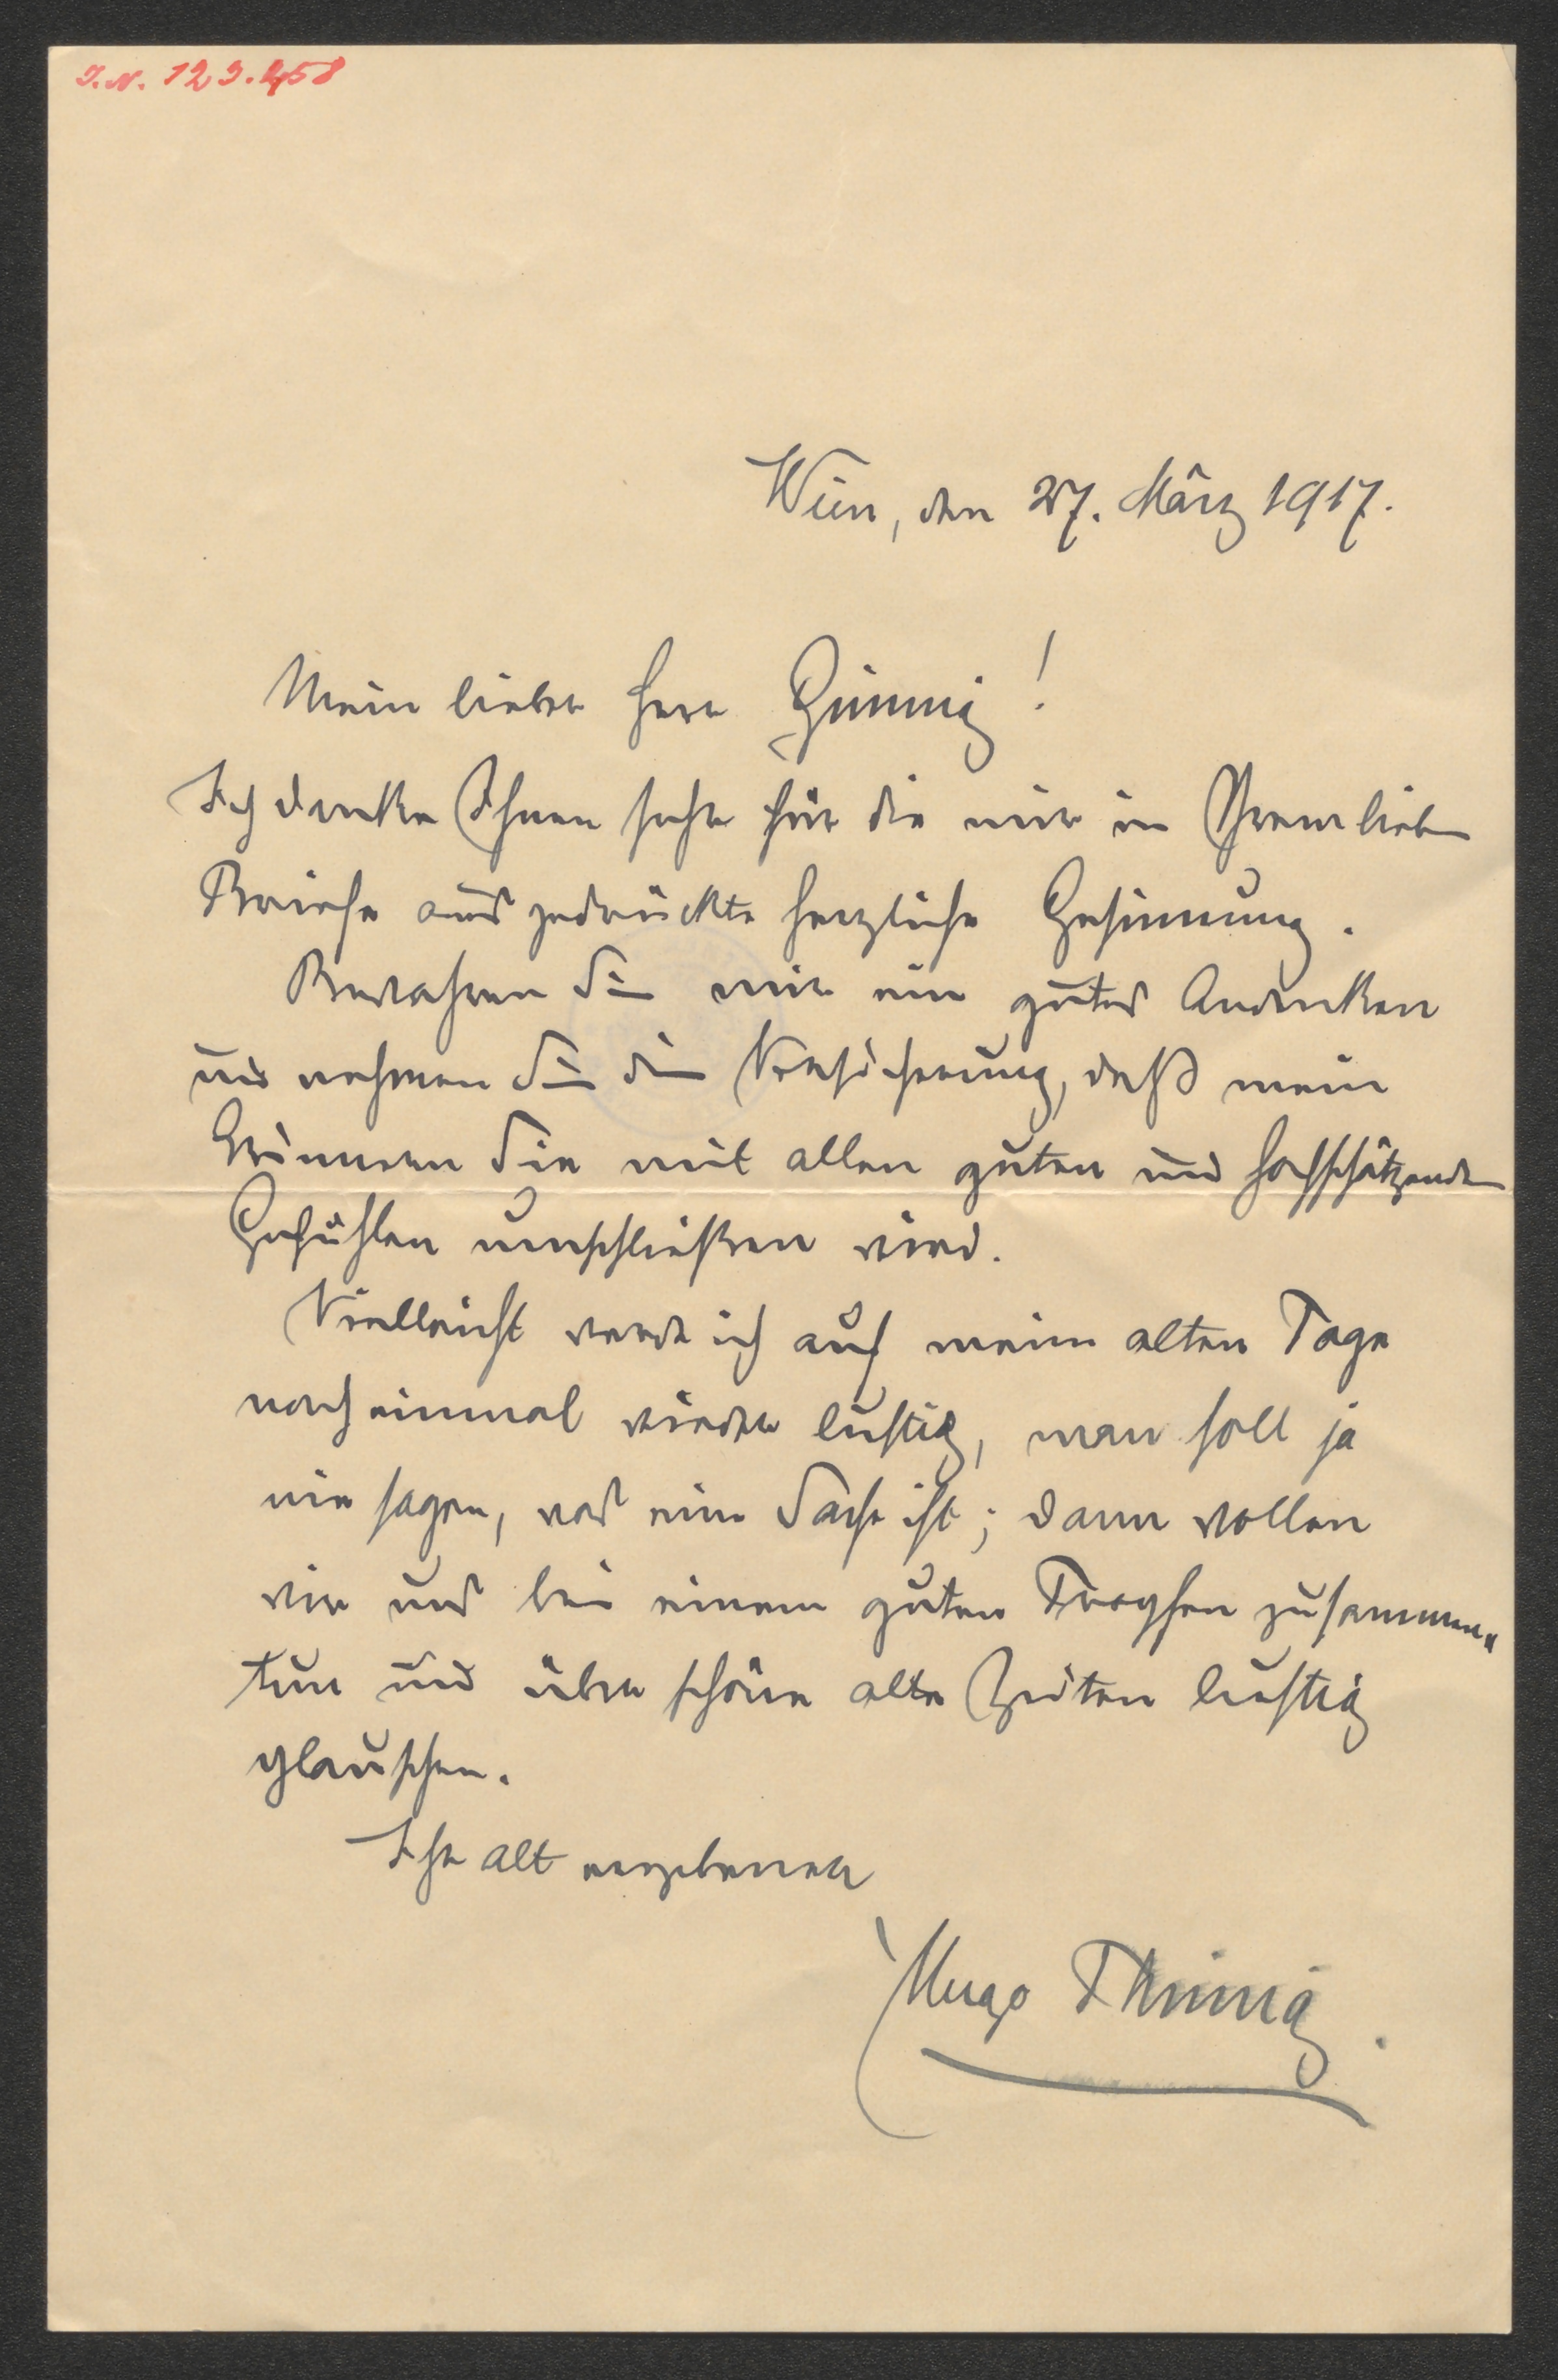 I.N. 123.458
Wien, den 27. März 1917.
Mein lieber Herr Gimnig!
Ich danke Ihnen sehr für die mir in Ihrem lieben
Briefe ausgedrückte herzliche Gesinnung.
Bewahren Sie mir ein gutes Andenken
und nehmen Sie die Versicherung, daß mein
Erinnern Sie mit allen guten und hochschätzenden
Gefühlen umschließen wird.
Vielleicht werde ich auf meine alten Tage
noch einmal wieder lustig, man soll ja
nie sagen, was eine Sache ist; dann wollen
wir uns bei einem guten Tropfen zusammen-
tun und über schöne alte Zeiten lustig
plauschen.
Ihr alt ergebener
Hugo Thimig.